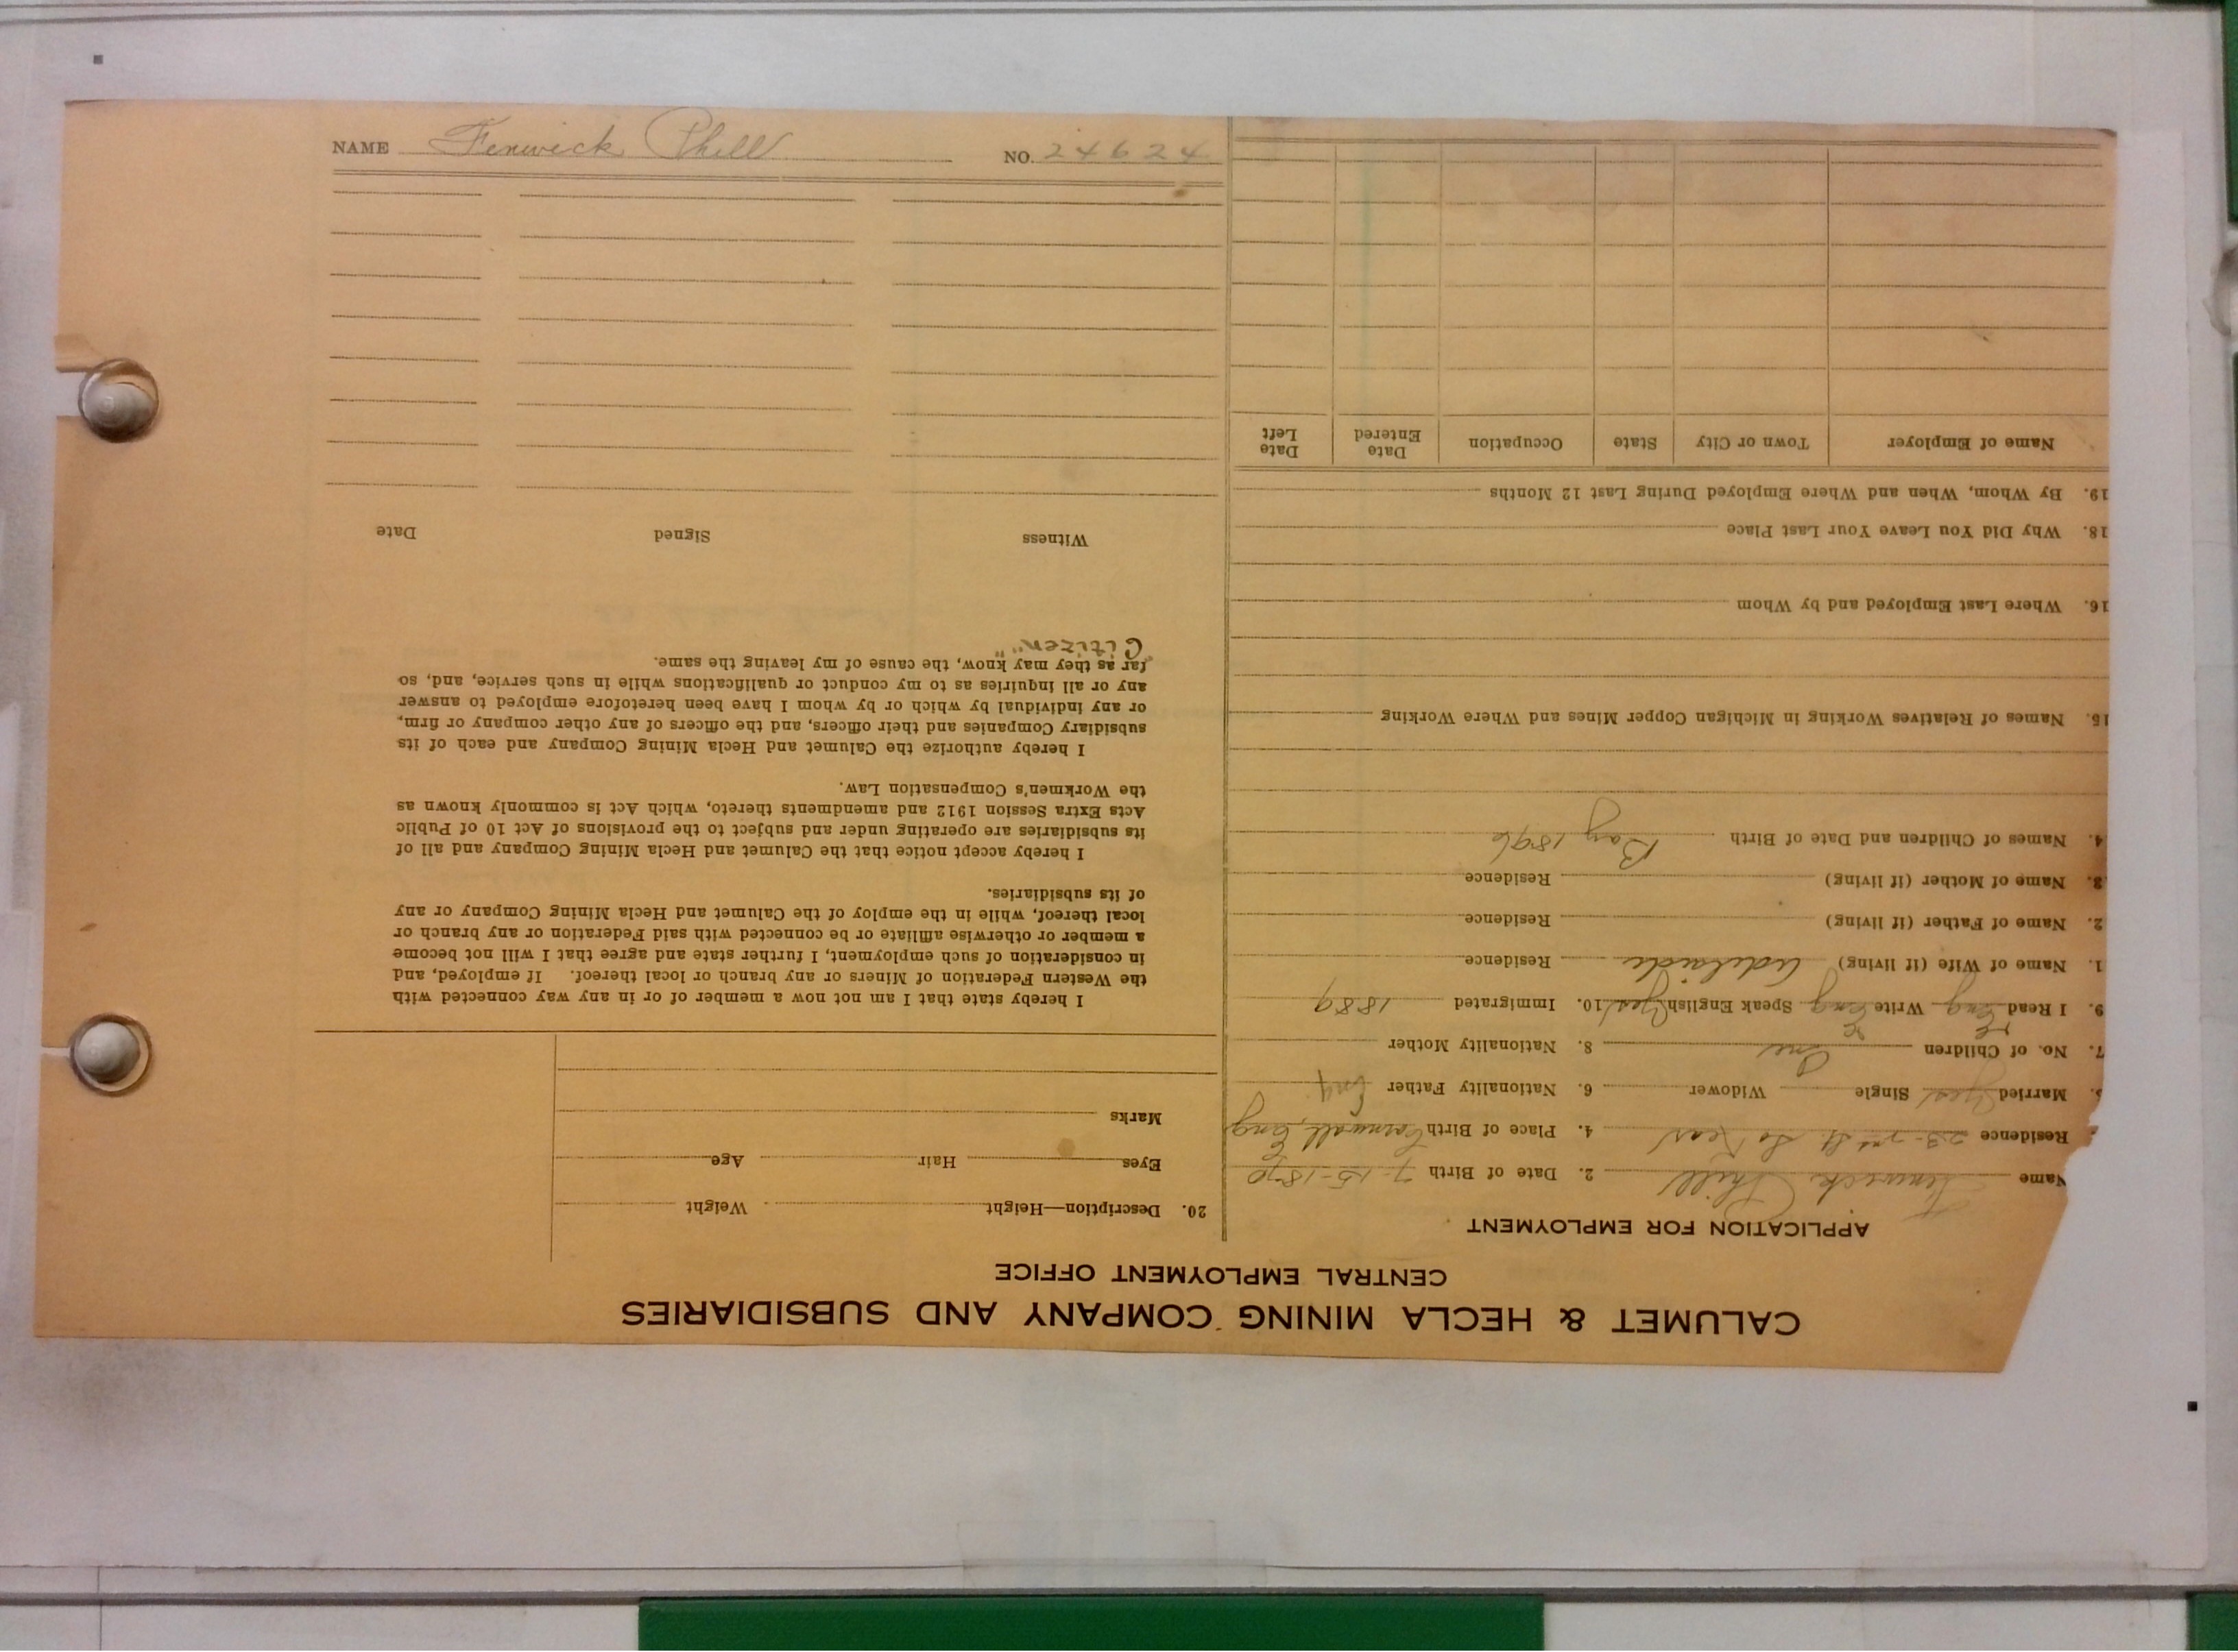 NAME Fenwick Phill NO. 24624
CALUMET & HECLA MINING COMPANY AND SUBSIDIARIES
CENTRAL EMPLOYMENT OFFICE
APPLICATION FOR EMPLOYMENT
Name Fenwick Phill 2. Date of Birth 7-15-1870
Residence 23- St So Kear 4. Place of Birth Cornwall, Eng
Married Yes Single Widower 6. Nationality Father Eng
7. No. of Children One 8. Nationality Mother
9. I Read Eng Write Eng Speak English Yes 10. Immigrated 1889
1. Name of Wife (if living) Adelaide Residence
2. Name of Father (if living) Residence
3. Name of Mother (if living) Residence
4. Names of Children and Date of Birth 1896
15. Names of Relatives Working in Michigan Copper Mines and Where Working
16. Where Last Employed and by Whom
18. Why Did You Leave Your Last Place
19. By Whom, When and Where Employed During Last 12 Months
Name of Employer Town or City State Occupation Date Entered Date Left
20. Description—Height Weight
Eyes Hair Age
Marks
I hereby state that I am not now a member of or in any way connected with
the Western Federation of Miners or any branch or local thereof. If employed, and
in consideration of such employment, I further state and agree that I will not become
a member or otherwise affiliate or be connected with said Federation or any branch or
local thereof, while in the employ of the Calumet and Hecla Mining Company or any
of its subsidiaries.
I hereby accept notice that the Calumet and Hecla Mining Company and all of
its subsidiaries are operating under and subject to the provisions of Act 10 of Public
Acts Extra Session 1912 and amendments thereto, which Act is commonly known as
the Workmen's Compensation Law.
I hereby authorize the Calumet and Hecla Mining Company and each of its
subsidiary Companies and their officers, and the officers of any other company or firm,
or any individual by which or by whom I have been heretofore employed to answer
any or all inquiries as to my conduct or qualifications while in such service, and, so
far as they may know, the cause of my leaving the same.
"Citizen"
Witness Signed Date